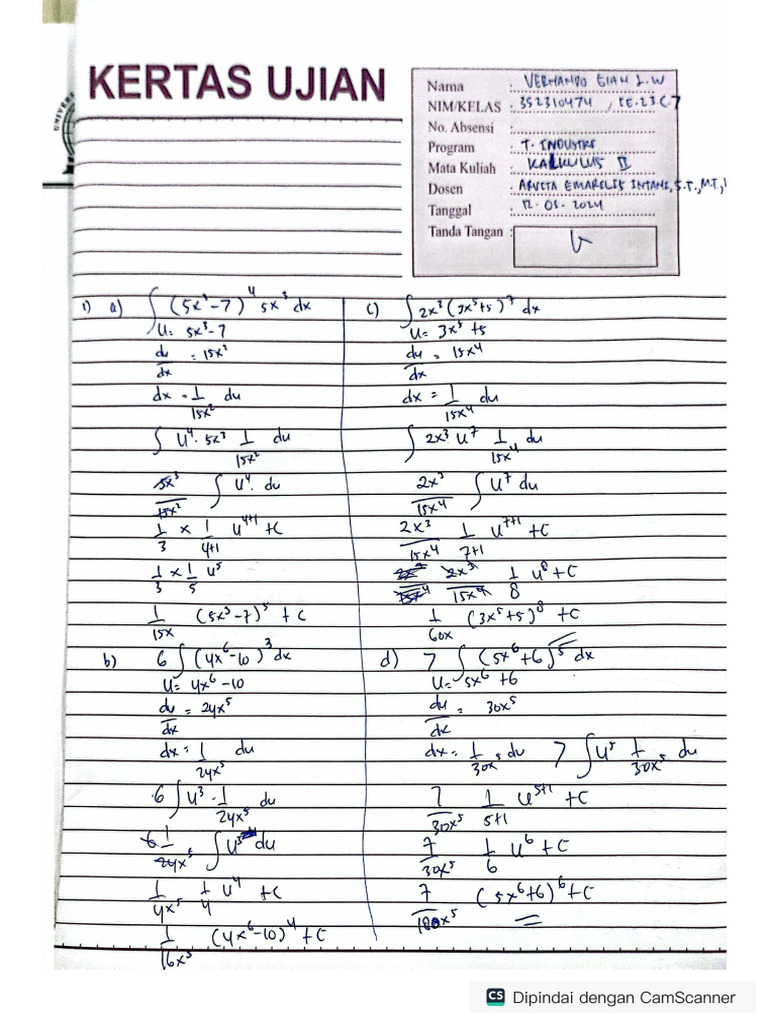 KERTAS UJIAN
Nama : VERNANDO GIAN L.W
NIM/KELAS : 352310474 / IE.23.C.7
No. Absensi :
Program : T. INDUSTRI
Mata Kuliah : KALKULUS II
Dosen : ARVITA EMARELIS INTANI, S.T., M.T.,
Tanggal : 12-05-2024
Tanda Tangan :
1) a) ∫ (5x³-7)⁴ 5x³ dx
U = 5x³-7
du/dx = 15x²
dx = 1/15x² du
∫ U⁴ . 5x³ 1/15x² du
5x³/15x² ∫ U⁴ . du
1/3 × 1/4+1 U⁴⁺¹ + C
1/3 × 1/5 U⁵
1/15x (5x³-7)⁵ + C
b) 6 ∫ (4x⁶-10)³ dx
U = 4x⁶-10
du/dx = 24x⁵
dx = 1/24x⁵ du
6 ∫ U³ . 1/24x⁵ du
6 1/24x⁵ ∫ U³ du
1/4x⁵ 1/4 U⁴ + C
1/16x⁵ (4x⁶-10)⁴ + C
c) ∫ 2x³ (3x⁵+5)⁷ dx
U = 3x⁵ + 5
du/dx = 15x⁴
dx = 1/15x⁴ du
∫ 2x³ U⁷ 1/15x⁴ du
2x³/15x⁴ ∫ U⁷ du
2x³/15x⁴ 1/7+1 U⁷⁺¹ + C
2x³/15x⁴ 1/8 U⁸ + C
1/60x (3x⁵+5)⁸ + C
d) 7 ∫ (5x⁶+6)⁵ dx
U = 5x⁶ + 6
du/dx = 30x⁵
dx = 1/30x⁵ du 7 ∫ U⁵ 1/30x⁵ du
7/30x⁵ 1/5+1 U⁵⁺¹ + C
7/30x⁵ 1/6 U⁶ + C
7/180x⁵ (5x⁶+6)⁶ + C
CS Dipindai dengan CamScanner